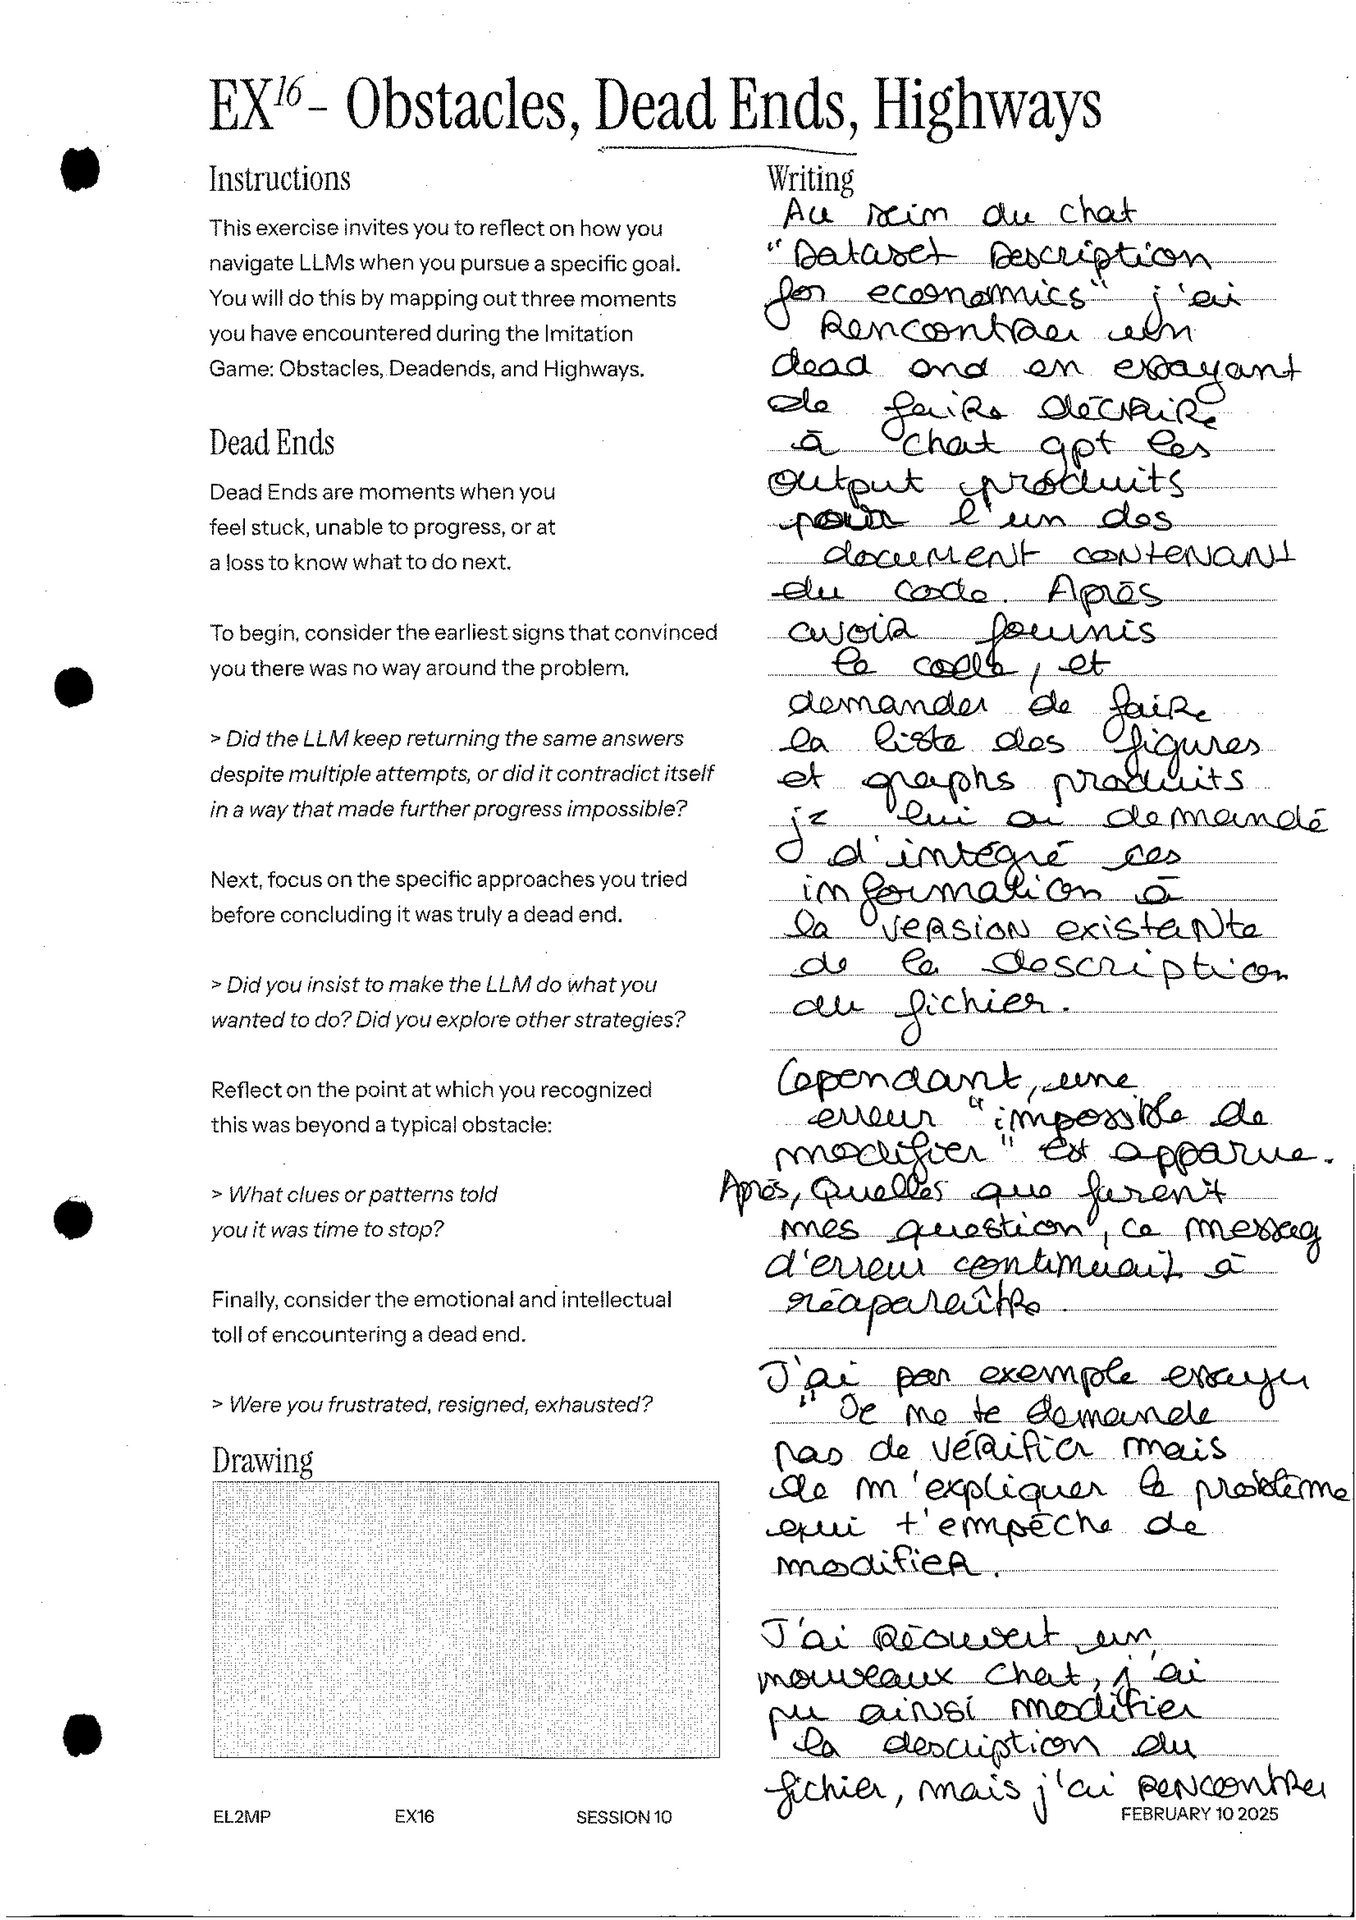 EX16 – Obstacles, Dead Ends, Highways
Instructions
This exercise invites you to reflect on how you
navigate LLMs when you pursue a specific goal.
You will do this by mapping out three moments
you have encountered during the Imitation
Game: Obstacles, Deadends, and Highways.
Dead Ends
Dead Ends are moments when you
feel stuck, unable to progress, or at
a loss to know what to do next.
To begin, consider the earliest signs that convinced
you there was no way around the problem.
> Did the LLM keep returning the same answers
despite multiple attempts, or did it contradict itself
in a way that made further progress impossible?
Next, focus on the specific approaches you tried
before concluding it was truly a dead end.
> Did you insist to make the LLM do what you
wanted to do? Did you explore other strategies?
Reflect on the point at which you recognized
this was beyond a typical obstacle:
> What clues or patterns told
you it was time to stop?
Finally, consider the emotional and intellectual
toll of encountering a dead end.
> Were you frustrated, resigned, exhausted?
Drawing
Writing
Au sein du chat
"Dataset Description
for economics" j'ai
rencontrer un
dead end en essayant
de faire décrire
à chat gpt les
output produits
pour l'un des
document contenant
du code. Après
avoir fournis
le code, et
demander de faire
la liste des figures
et graphs produits
je lui ai demandé
d'intégré ces
information à
la version existante
de la description
du fichier.
Cependant, une
erreur "impossible de
modifier" est apparue.
Après, quelles que furent
mes question, ce messag
d'erreur continuait à
réaparaître.
J'ai par exemple essayer
"Je ne te demande
pas de vérifier mais
de m'expliquer le problème
qui t'empêche de
modifier.
J'ai réouvert un
nouveaux chat, j'ai
pu ainsi modifier
la description du
fichier, mais j'ai rencontrer
EL2MP EX16 SESSION 10 FEBRUARY 10 2025